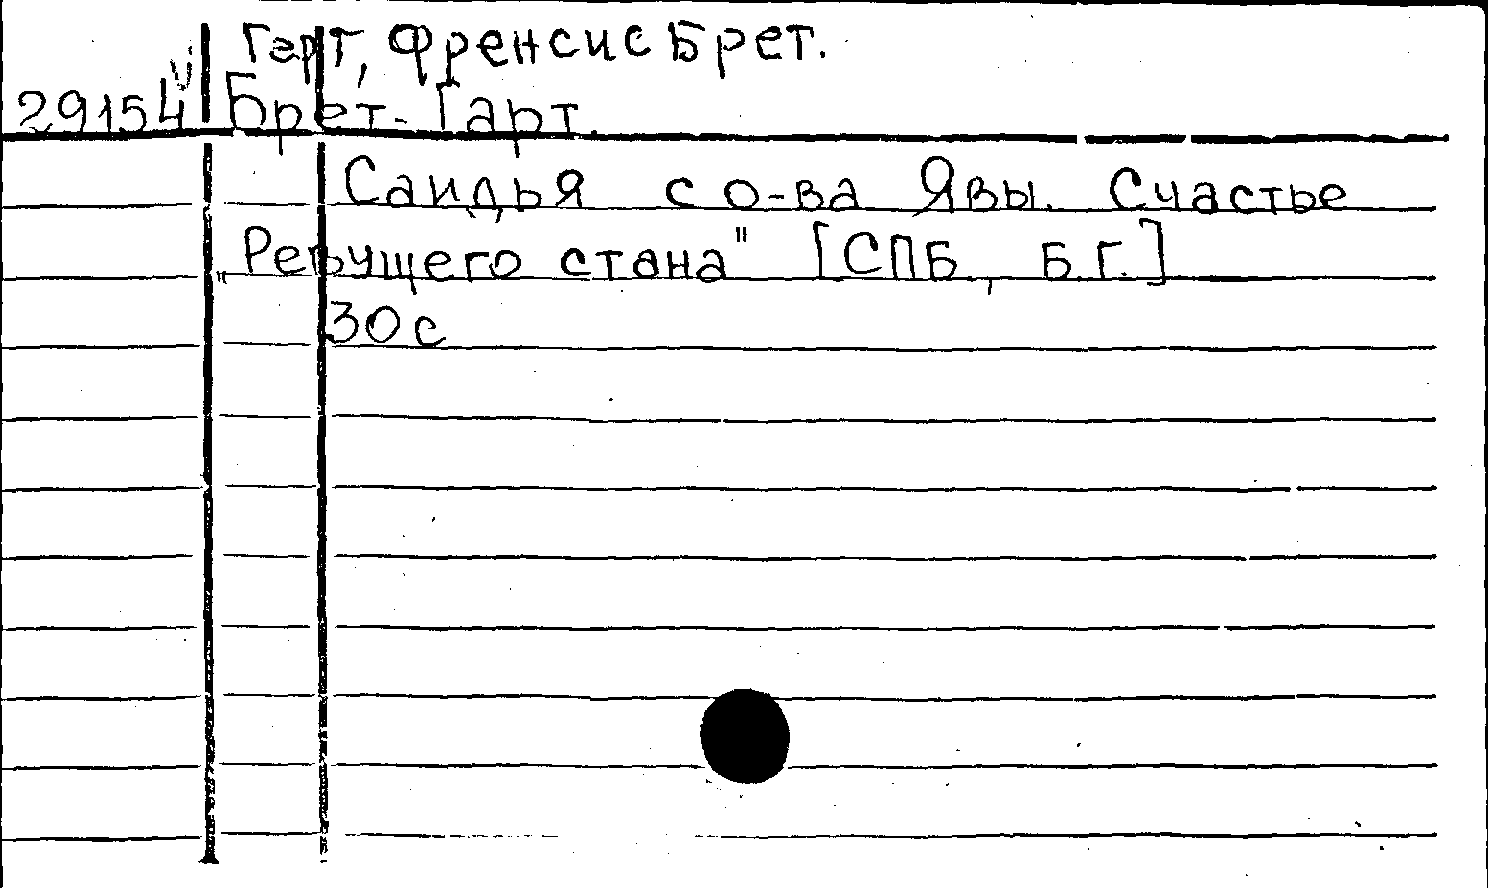 Гарт, Френсис Брет.
29154 Брет-Гарт.
Саидья с о-ва Явы. Счастье
„Ревущего стана" [СПБ, Б.Г.]
30 с